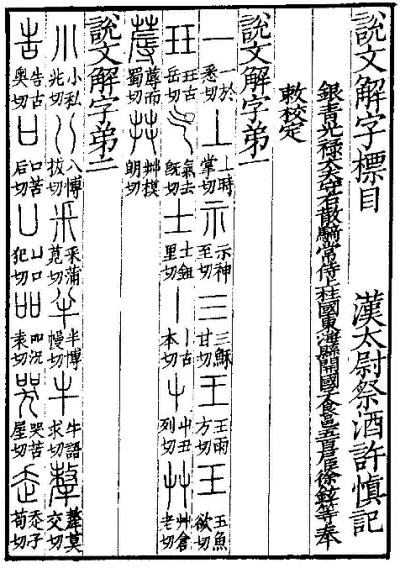 說文解字標目　漢太尉祭酒許慎記
銀青光祿大夫守右散騎常侍上柱國東海縣開國子食邑五百戶臣徐鉉等奉
敕校定
說文解字弟一
一 一於悉切 丄 丄時掌切 示 示神至切 三 三穌甘切 王 王雨方切 玉 玉魚欲切
玨 玨古岳切 气 气去旣切 士 士鉏里切 丨 丨古本切 屮 屮丑列切 艸 艸倉老切
蓐 蓐而蜀切 茻 茻模朗切
說文解字弟二
小 小私兆切 八 八博拔切 釆 釆蒲莧切 半 半博幔切 牛 牛語求切 犛 犛莫交切
告 告古奧切 口 口苦后切 凵 凵口犯切 吅 吅況袁切 哭 哭苦屋切 走 走子苟切